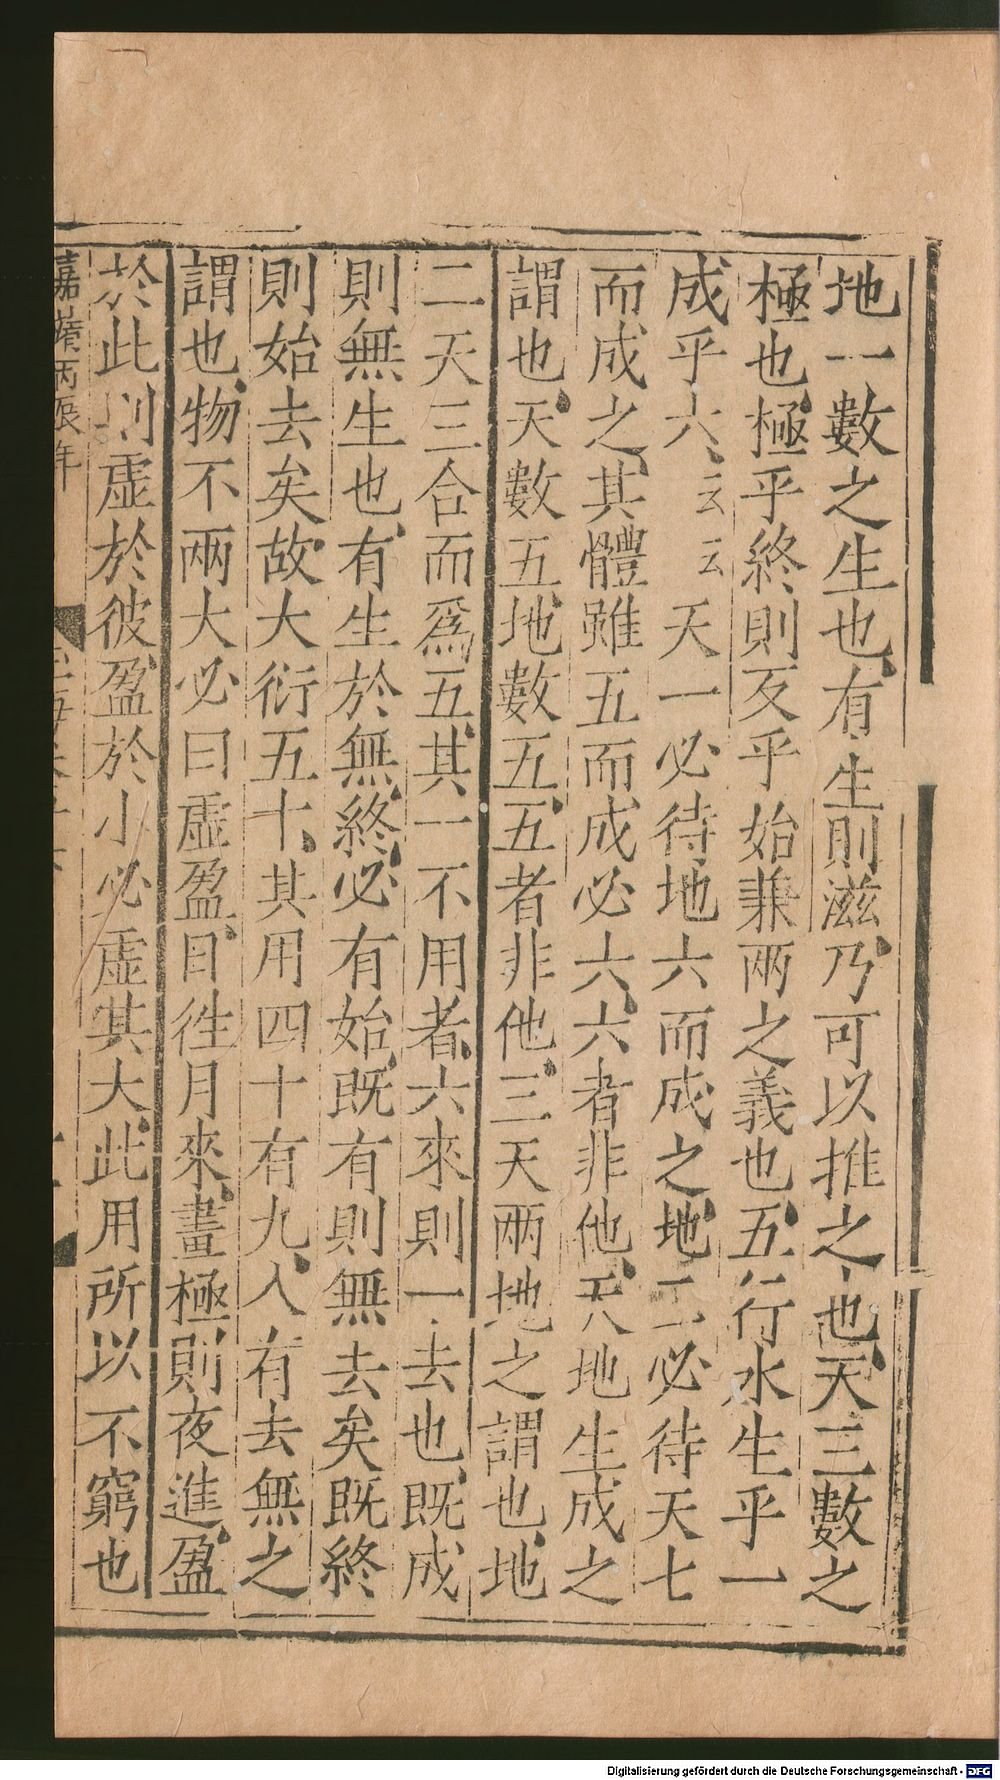 地一數之生也有生則滋乃可以推之也天三數之
極也極乎終則反乎始兼兩之義也五行水生乎一
成乎六云云天一必待地六而成之地二必待天七
而成之其體雖五而成必六六者非他天地生成之
謂也天數五地數五五者非他三天兩地之謂也地
二天三合而爲五其一不用者六來則一去也既成
則無生也有生於無終必有始既有則無去矣既終
則始去矣故大衍五十其用四十有九人有去無之
謂也物不兩大必曰虛盈日徃月來晝極則夜進盈
於此則虛於彼盈於小必虛其大此用所以不窮也
嘉
丙辰年
Digitalisierung gefördert durch die Deutsche Forschungsgemeinschaft - DFG